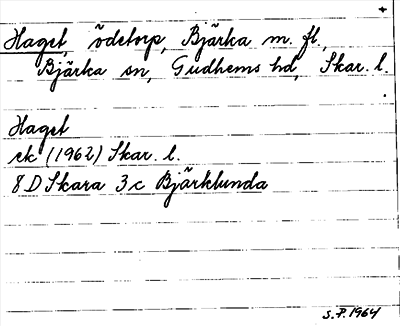 Haget, ödetorp, Bjärka m. fl.,
Bjärka sn, Gudhems hd, Skar. l.
Haget
ek (1962) Skar. l.
8 D Skara 3c Bjärklunda
S.P. 1964